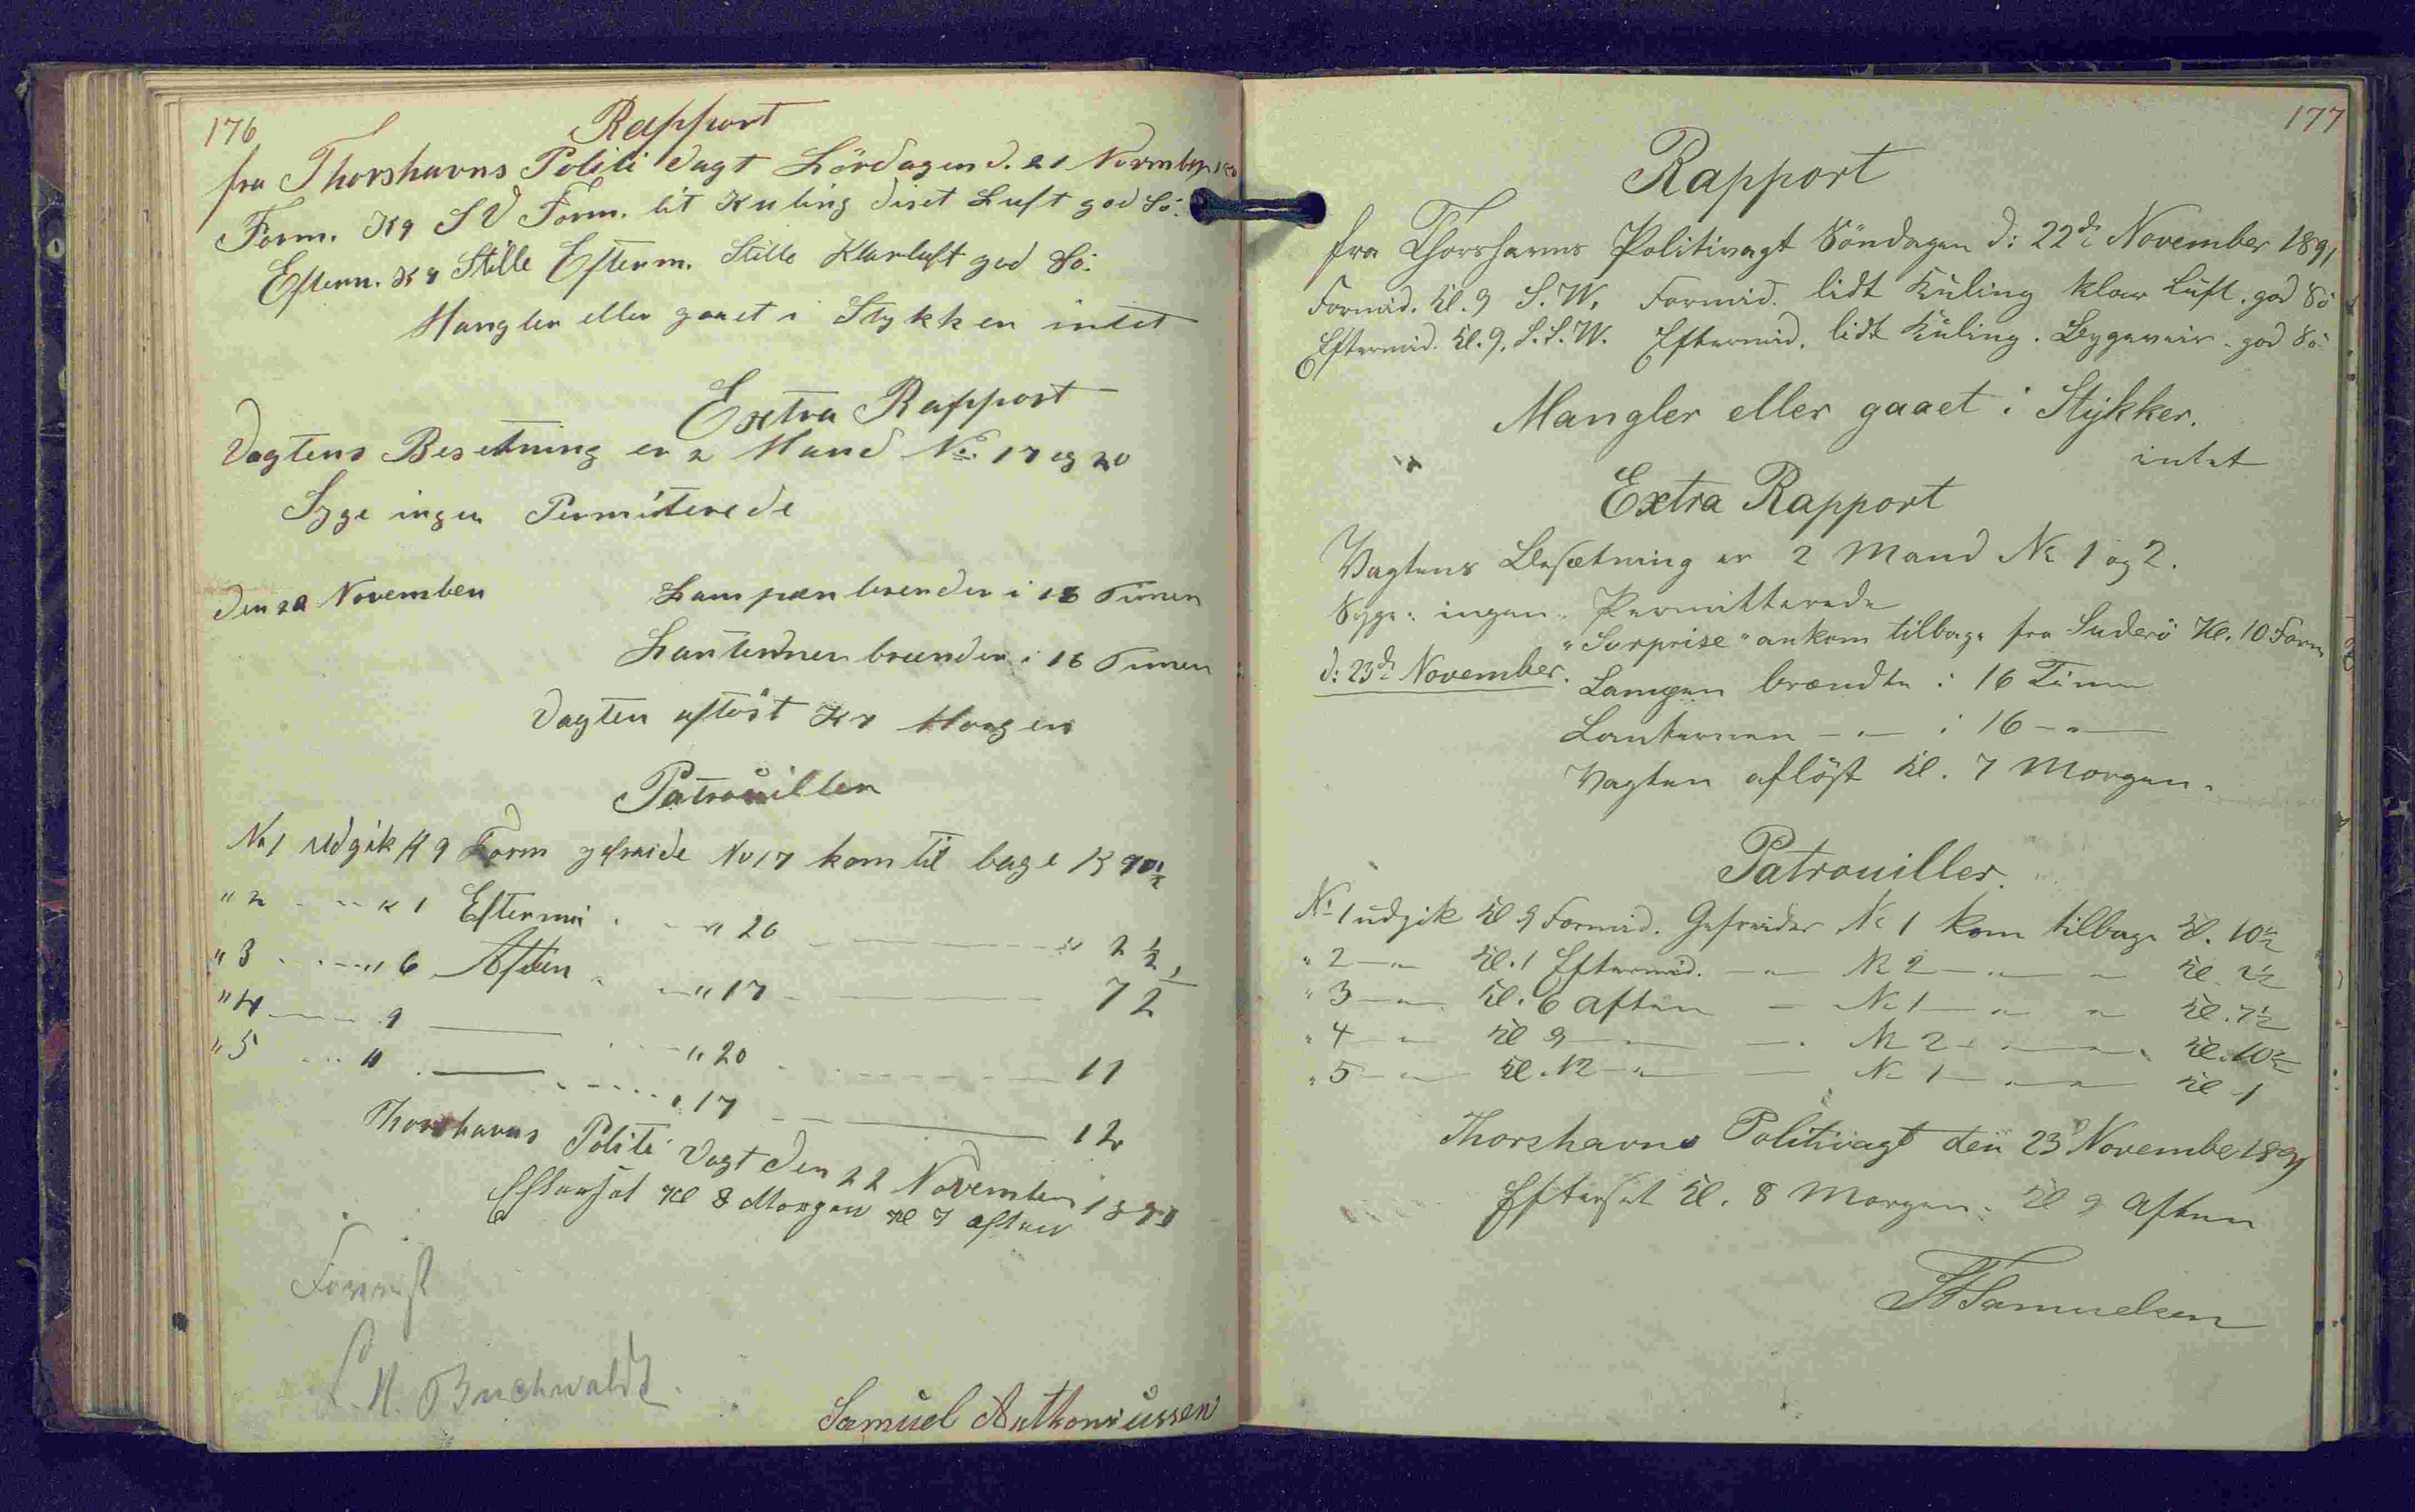 176
Rapport
fra Thorshavns Politi Vagt Lördagen d. 21 November
Form. K 9 S V Form. lit Kuling diset Luft god Sö.
Efterm. K 9 Stille Efterm. Stille Klarluft god Sö.
Mangler eller gaaet i Stykker intet
Extra Rapport
Vagtens Besetning er 2 Mand No. 17 og 20
Syge ingen Permiterede
Den 22 November Lampen brender i 16 Timer
Lanternen brender i 16 Timer
Vagten aflöst K 7 Morgen
Patrouiller
No 1 udgik K 9 Form gefreide No 17 kom til bage K 10½
" 2 - - - " K 1 Eftermi - - " 20 - - - " 2½
" 3 - - - " 6 Aften - - " 17 - - - 7½
" 4 - - - 9 - - - " 20 - - - 11
" 5 - - - 11 - - - " 17 - - - 12
Thorshavns Politi Vagt den 22 November 1891
Efterset Kl 8 Morgen Kl 7 Aften
L. H. Buchwaldt.
Samuel Anthoniussen
177
Rapport
fra Thorshavns Politivagt Söndagen d: 22de November 1891
Formid. Kl. 9 S.W. Formid. lidt Kuling klar Luft. god Sö
Eftermid. Kl. 9. S.S.W. Eftermid. lidt Kuling. Bygeveir. god Sö
Mangler eller gaaet i Stykker.
intet
Extra Rapport
Vagtens Besætning er 2 Mand No 1 og 2.
Syge: ingen. Permitterede
"Surprise" ankom tilbage fra Suderö Kl. 10 Form
d: 23de November. Lampen brændte i 16 Timer
Lanternen - " - i 16 - " -
Vagten aflöst Kl. 7 Morgen.
Patrouiller.
No 1 udgik Kl 9 Formid. Gefreider No 1 kom tilbage Kl. 10½
" 2 - " - Kl. 1 Eftermid. - " - No 2 - " - " - Kl. 2½
" 3 - " - Kl. 6 Aften - No 1 - " - " - Kl. 7½
" 4 - " - Kl 9 - " - - No 2 - " - " - Kl. 10½
" 5 - " - Kl. 12 - " - - No 1 - " - " - Kl 1
Thorshavns Politivagt den 23 November 1891
Efterset Kl. 8 Morgen. Kl 9 Aften
Samuelsen